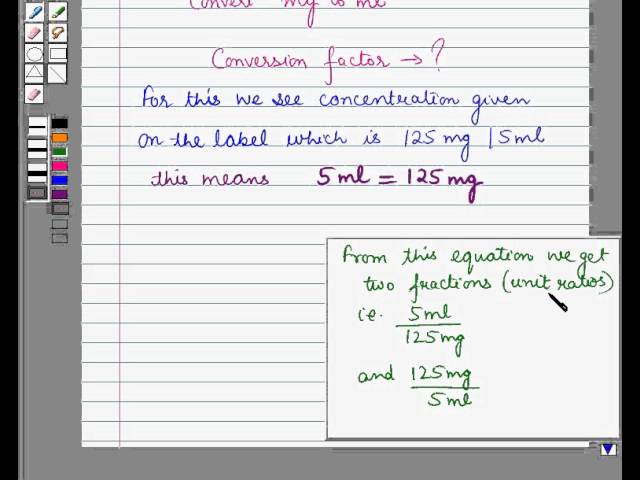 Convert mg to ml
Conversion factor → ?
For this we see concentration given
on the label which is 125 mg | 5ml
this means 5ml = 125 mg
From this equation we get
two fractions (unit ratios)
i.e. 5ml
125 mg
and 125mg
5ml